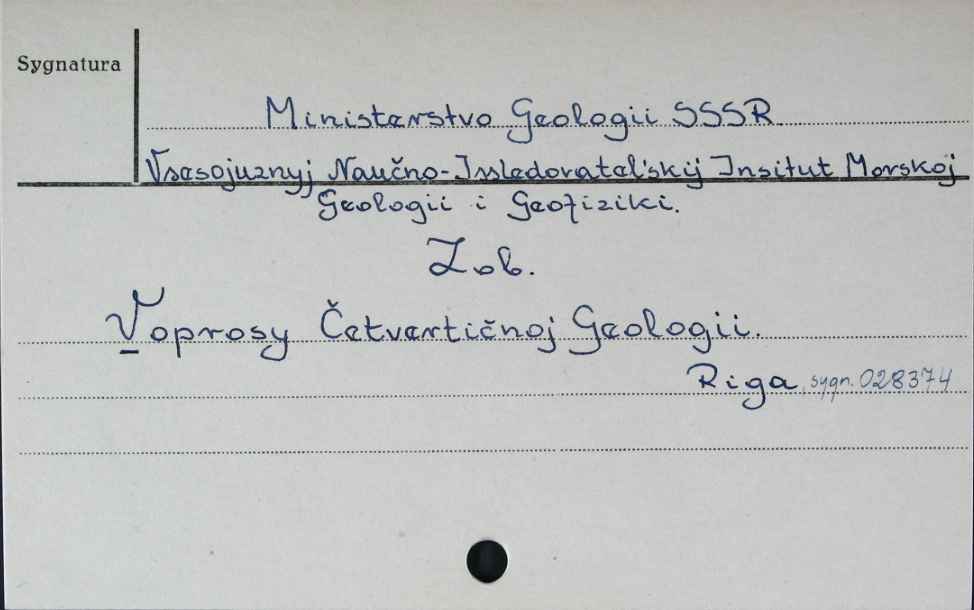 Sygnatura
Ministerstvo Geologii SSSR
Vsesojuznyj Naučno-Issledovatel'skij Insitut Morskoj
Geologii i Geofiziki.
Zob.
Voprosy Četvertičnoj Geologii.
Riga, sygn. 028374